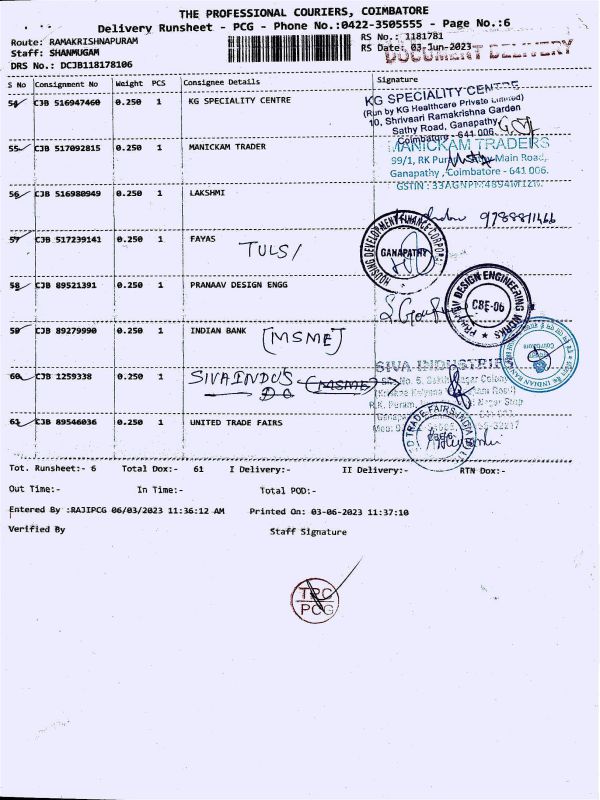 THE PROFESSIONAL COURIERS, COIMBATORE
Delivery Runsheet - PCG - Phone No.:0422-3505555 - Page No.:6
Route: RAMAKRISHNAPURAM
RS No.: 1181781
Staff: SHANMUGAM
RS Date: 03-Jun-2023
DOCUMENT DELIVERY
DRS No.: DCJB118178106
S No Consignment No Weight PCS Consignee Details Signature
54 CJB 516947460 0.250 1 KG SPECIALITY CENTRE
KG SPECIALITY CENTRE
(Run by KG Healthcare Private Limited)
10, Shrivaari Ramakrishna Garden
Sathy Road, Ganapathy
Coimbatore - 641 006.
55 CJB 517092815 0.250 1 MANICKAM TRADER
MANICKAM TRADERS
99/1, RK Puram, Main Road,
Ganapathy, Coimbatore - 641 006.
56 CJB 516980949 0.250 1 LAKSHMI
57 CJB 517239141 0.250 1 FAYAS
TULSI
HOUSING DEVELOPMENT FINANCE CORPO
GANAPATHY
58 CJB 89521391 0.250 1 PRANAAV DESIGN ENGG
PRANAAV DESIGN ENGINEERING WORKS
CBE-06
59 CJB 89279990 0.250 1 INDIAN BANK
[MSME]
INDIAN BANK
60 CJB 1259338 0.250 1 SIVAINDUS (MSME)
SIVA INDUSTRIE
61 CJB 89546036 0.250 1 UNITED TRADE FAIRS
TRADE FAIRS INDIA
CBE-6
Tot. Runsheet:- 6 Total Dox:- 61 I Delivery:- II Delivery:- RTN Dox:-
Out Time:- In Time:- Total POD:-
Entered By :RAJIPCG 06/03/2023 11:36:12 AM Printed On: 03-06-2023 11:37:10
Verified By Staff Signature
TPC
PCG